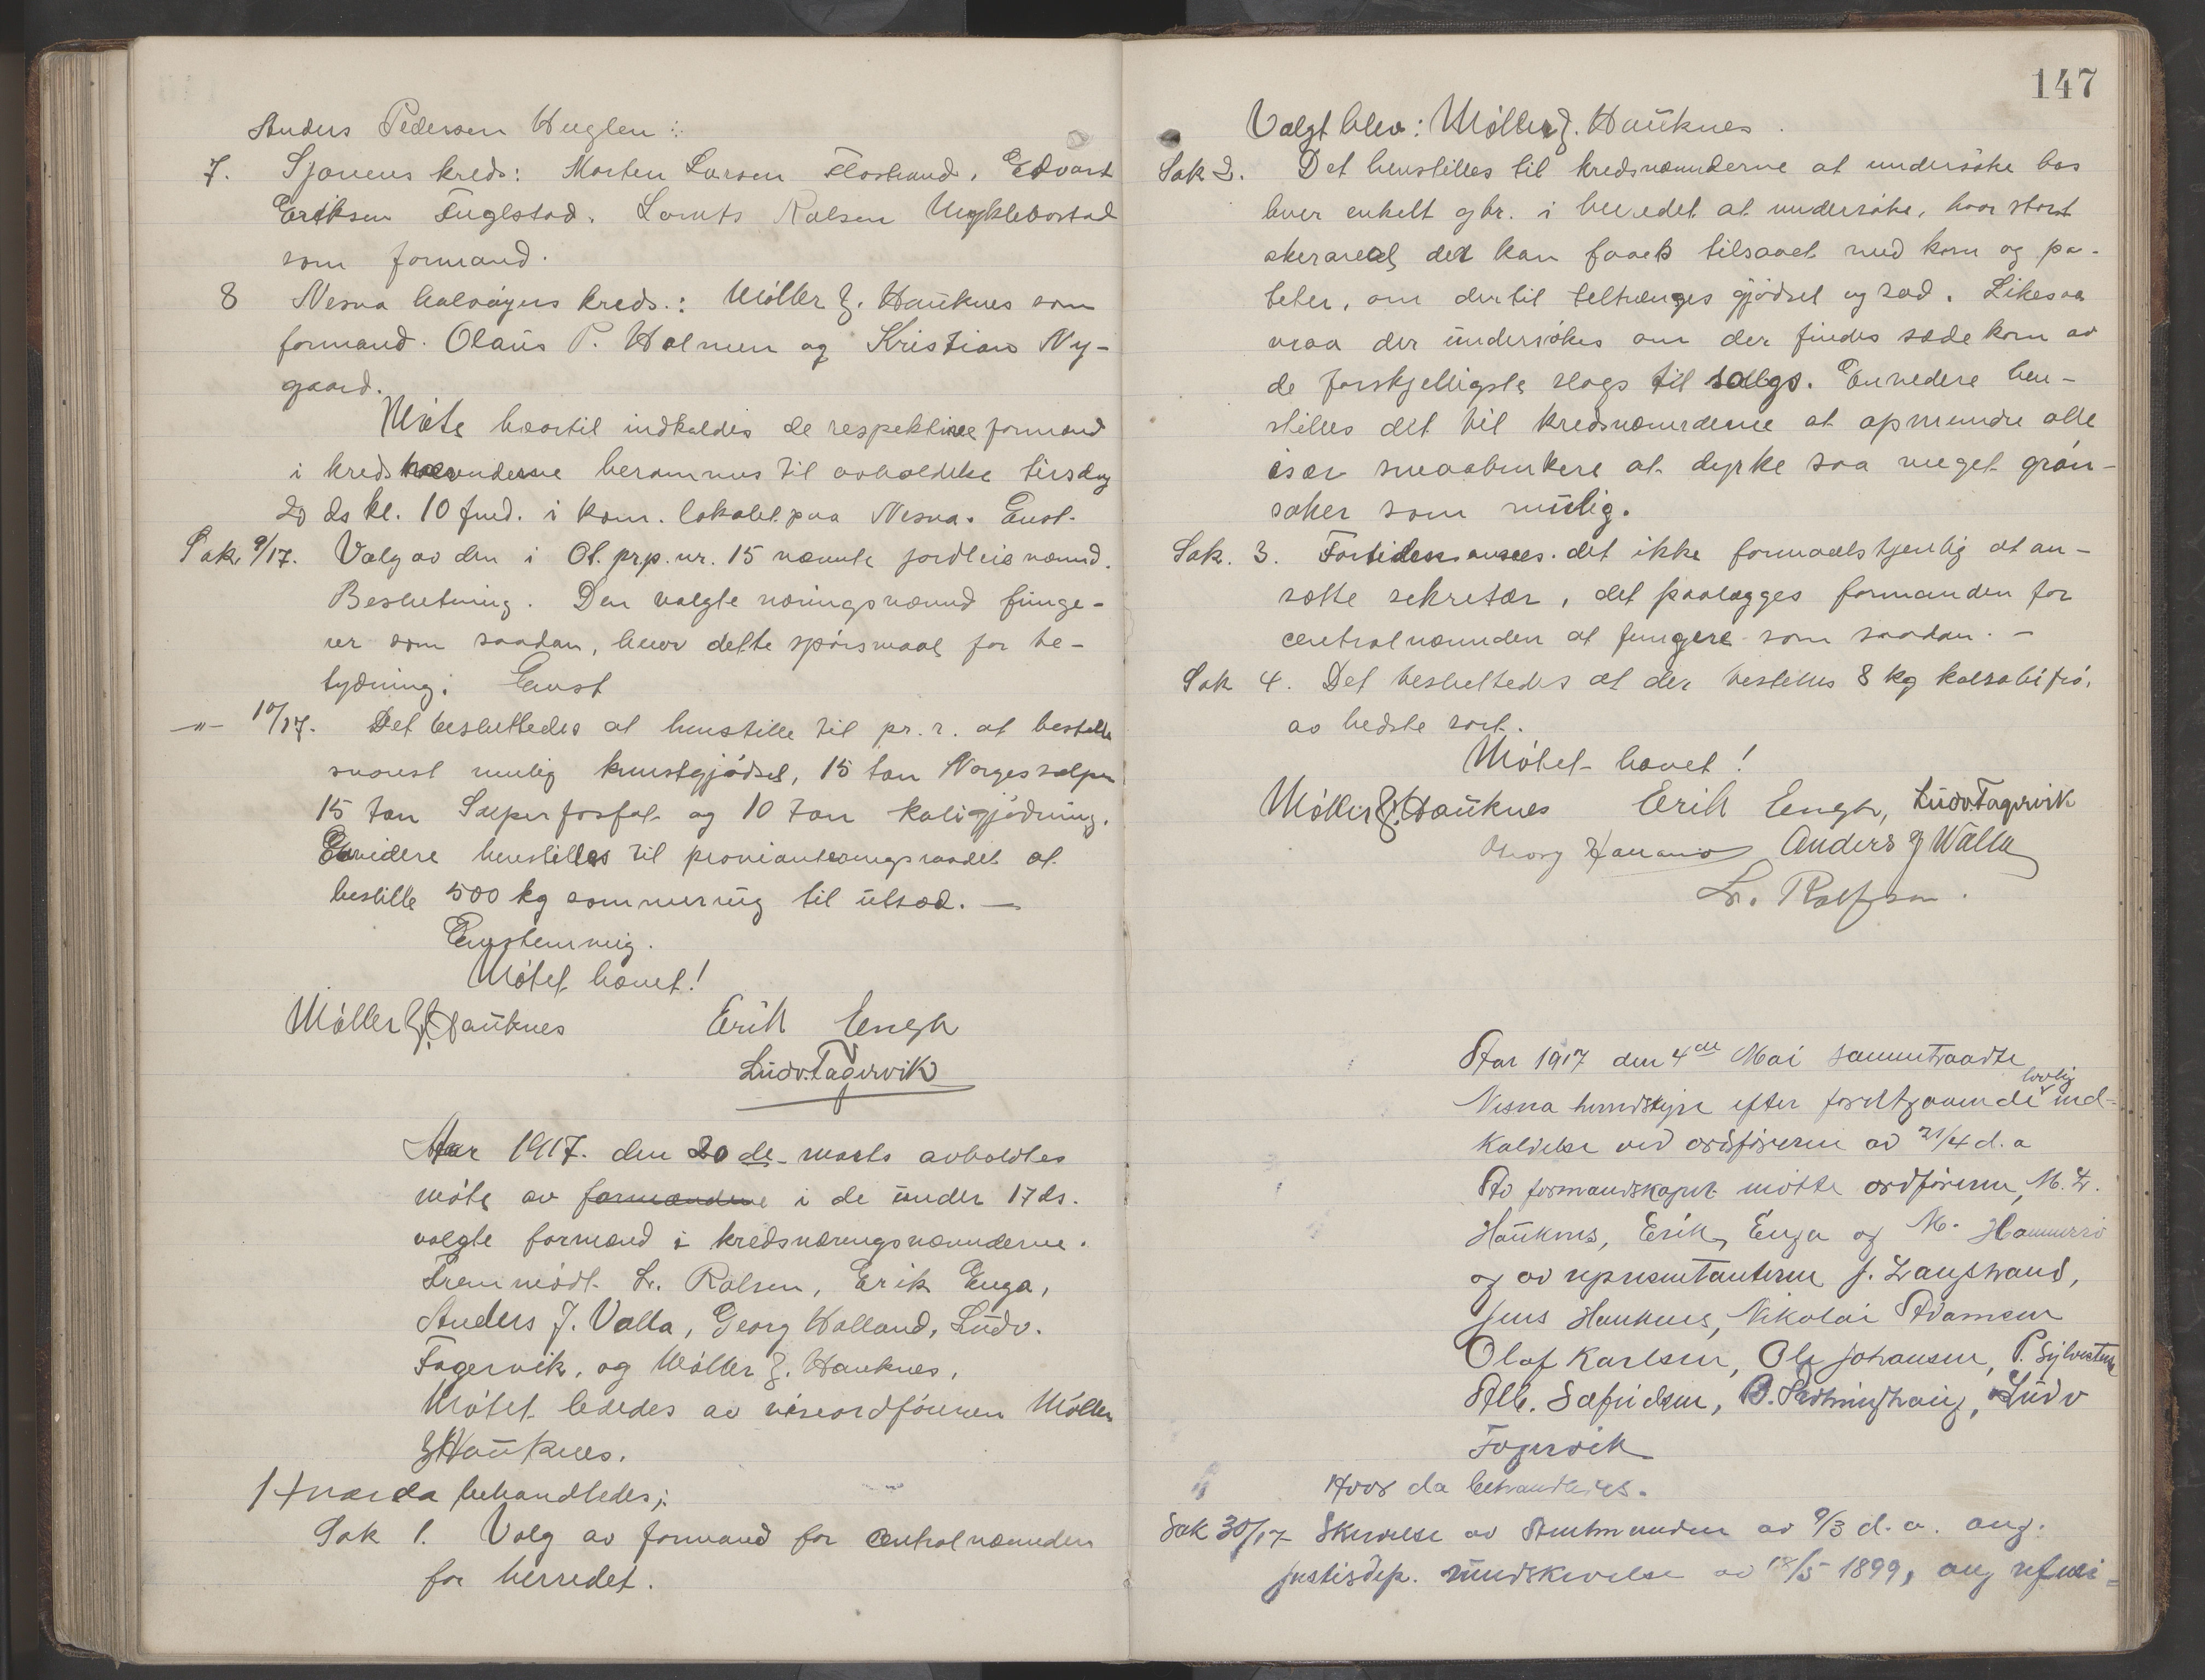 Anders Pedersen Huglen:
7. Sjonens kreds: Morten Larsen Flostrand, Edvart
Eriksen Fuglstad. Lornts Rolsen
som formand.
8 Nesna halvøyens kreds.: Møller Z. Hauknes som
formand. Olaus P. Holmen og Kristian Ny-
gaard.
Møte hvortil indkaldes de respektive formænd
i kredsnævnderne berammes til avholdelse tirsdag
20 ds kl. 10 fmd. i kom. lokalet paa Nesna. Enst.
Sak 9/17. Valg av den i Ot. prp. nr. 15 nævnte jordleienævnd.
Beslutning. Den valgte næringsnævnd funge-
rer som saadan, hvor dette spørsmaal faar be-
tydning. Enst
—"— 10/17. Det besluttedes at henstille til pr. r. at bestille
snarest mulig kunstgjødsel, 15 ton Norgessalpe
15 ton Superfosfat og 10 ton kaligjødning.
Envidere henstilles til provianteringsraadet at
bestille 500 kg sommerrug til utsæd. —
Enstemmig.
Møtet hævet!
Møller Z. Hauknes Erik Enga
Ludv. Fagervik
Aar 1917. den 20de marts avholdtes
møte av formændene i de under 17 ds.
valgte formænd i kredsnæringsnævnderne.
Fremmødt L. Rolsen, Erik Enga,
Anders J. Valla, Georg Halland, Ludv.
Fagervik, og Møller Z. Hauknes.
Møtet lededes av viseordføreren Møller
Z Hauknes.
Hvorda behandledes:
Sak 1. Valg av formand for centralnævnden
for herredet.
147
Valgt blev: Møller Z. Hauknes.
Sak 2. Det henstilles til kredsnævnderne at undersøke hos
hver enkelt gbr. i herredet at undersøke, hvor stort
akerareal der kan faaes tilsaaet med korn og po-
teter, om dertil tiltrænges gjødsel og sæd. Likesaa
maa der undersøkes om der findes sædekorn av
de forskjelligste slags til salgs. Envidere hen-
stilles det til kredsnævnderne at opmuntre alle
især smaabrukere at dyrke saa meget grøn-
saker som mulig.
Sak. 3. Fortiden ansees det ikke formaalstjenlig at an-
sætte sekretær, det paalægges formanden for
centralnævnden at fungere som saadan. —
Sak 4. Det besluttedes at der bestilles 8 kg kaalrabifrø.
av bedste sort.
Møtet hævet!
Møller Z. Hauknes Erik Enga, Ludv Fagervik
Georg Anders J Valla
L. Rolfsen.
Aar 1917 den 4de Mai sammentraadte
Nesna herredstyre efter foregaaende lovlig ind-
kaldelse ved ordføreren av 21/4 d. a
Av formandskapet møtte ordføreren, M. Z.
Hauknes, Erik Enga og M. Hammerø
og av representanterne J. Langstrand,
Jens Hauknes, Nikolai Adamsen
Olaf Karlsen, Ole Johansen, P. Sylvesten
Alb. Sefridsen, Ludv
Fagervik
Hvor da behandledes.
Sak 30/17 Skrivelse av Amtmanden av 9/3 d. a. ang.
justisdep. rundskrivelse av 18/5 1899, ang